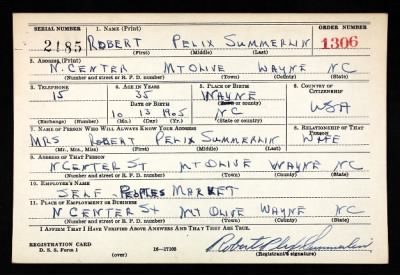 SERIAL NUMBER 1. NAME (Print) ORDER NUMBER
2185 ROBERT FELIX SUMMERLIN 1306
(First) (Middle) (Last)
2. ADDRESS (Print)
N. CENTER MT OLIVE WAYNE NC
(Number and street or R. F. D. number) (Town) (County) (State)
3. TELEPHONE 4. AGE IN YEARS 5. PLACE OF BIRTH 6. COUNTRY OF CITIZENSHIP
15 35 WAYNE
DATE OF BIRTH (Town or county)
10 13 1905 NC USA
(Exchange) (Number) (Mo.) (Day) (Yr.) (State or country)
7. NAME OF PERSON WHO WILL ALWAYS KNOW YOUR ADDRESS 8. RELATIONSHIP OF THAT PERSON
MRS ROBERT FELIX SUMMERLIN WIFE
(Mr., Mrs., Miss) (First) (Middle) (Last)
9. ADDRESS OF THAT PERSON
N CENTER ST MT OLIVE WAYNE NC
(Number and street or R. F. D. number) (Town) (County) (State)
10. EMPLOYER'S NAME
SELF - PEOPLES MARKET
11. PLACE OF EMPLOYMENT OR BUSINESS
N CENTER ST MT OLIVE WAYNE NC
(Number and street or R. F. D. number) (Town) (County) (State)
I AFFIRM THAT I HAVE VERIFIED ABOVE ANSWERS AND THAT THEY ARE TRUE.
Robert Felix Summerlin
REGISTRATION CARD
D. S. S. Form 1 16-17105 (Registrant's signature)
(over)